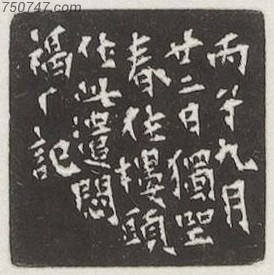 750747.com
丙子九月
廿二日獨坐
春住樓頭
作此遣悶
福厂記